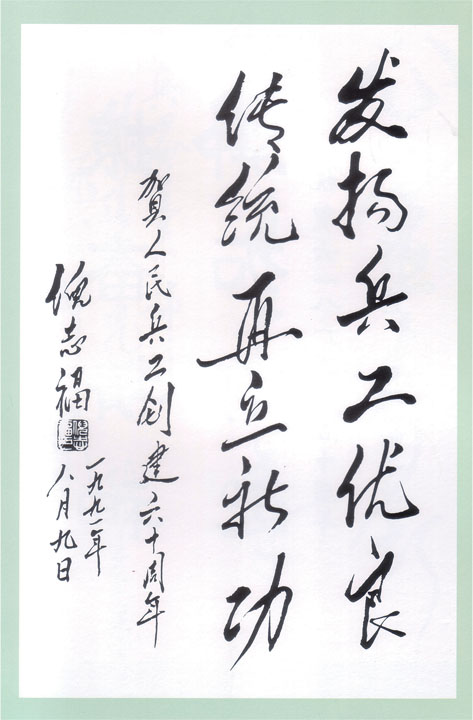 发扬兵工优良
传统再立新功
贺人民兵工创建六十周年
倪志福
一九九一年
八月九日